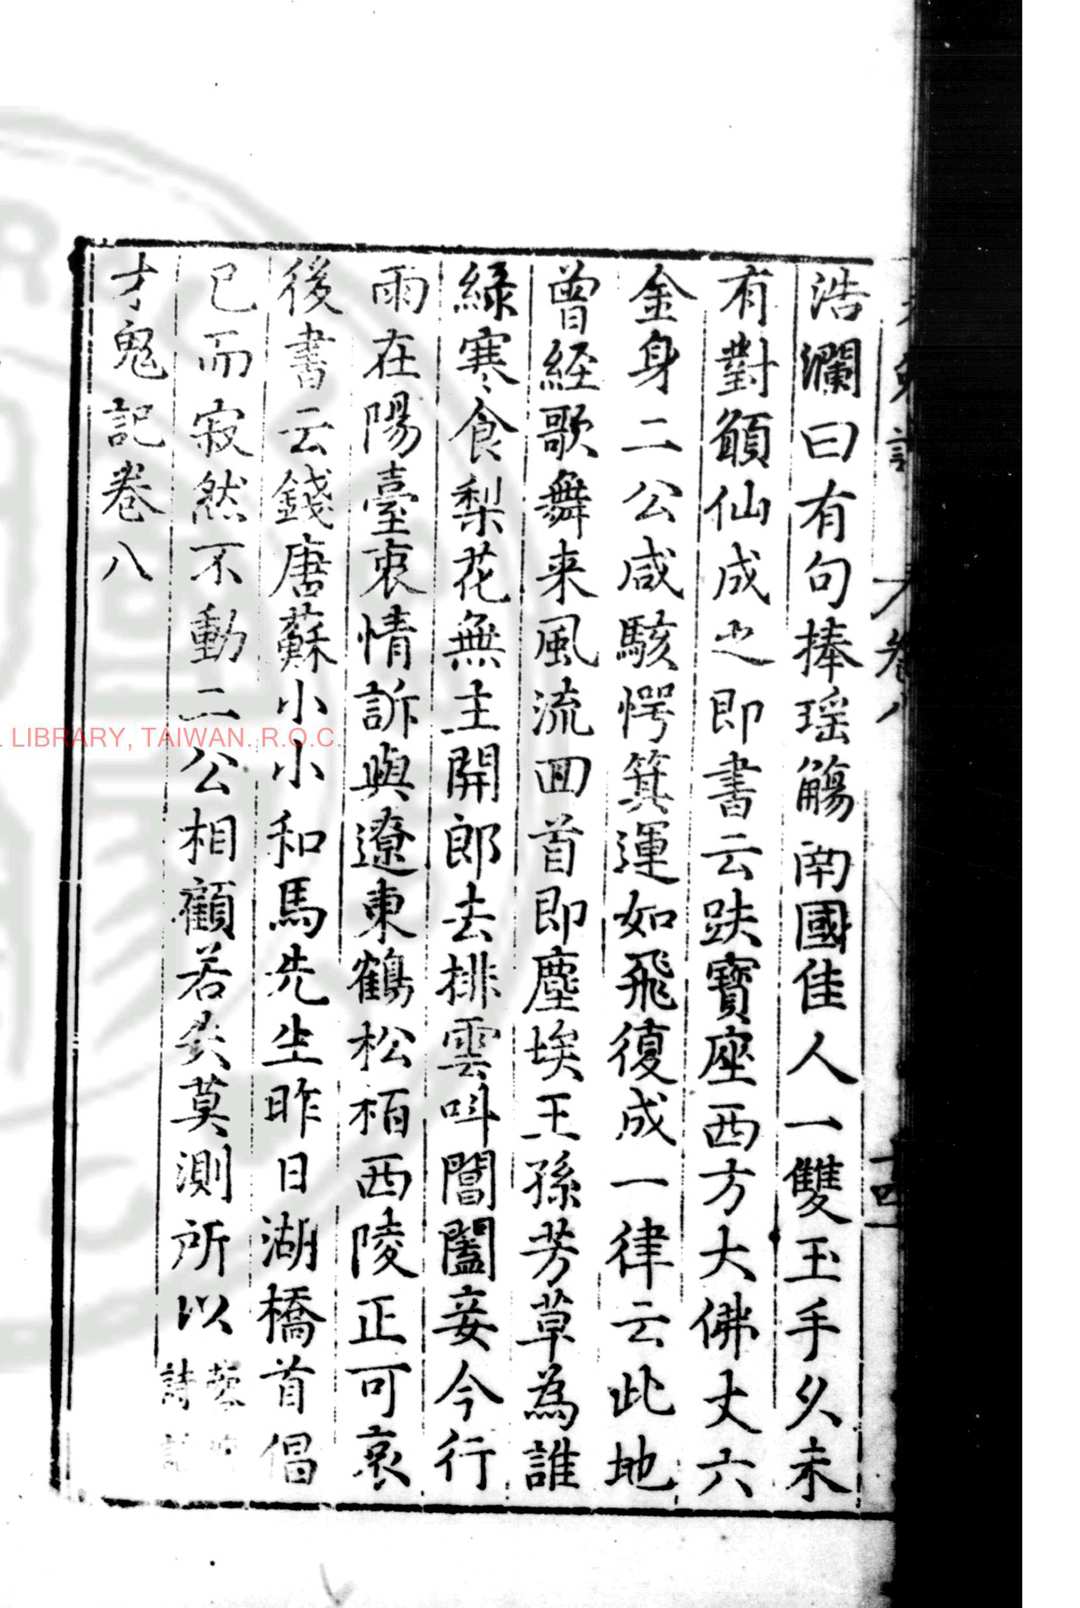 浩瀾曰有句捧瑶觴南國佳人一雙玉手久未
有對願仙成之即書云趺寳座西方大佛丈六
金身二公咸駭愕箕運如飛復成一律云此地
曾經歌舞来風流回首即塵埃王孫芳草為誰
緑寒食梨花無主開郎去排雲呌閶闔妾今行
雨在陽臺衷情訴與遼東鶴松栢西陵正可哀
後書云錢唐蘇小小和馬先生昨日湖橋首倡
已而寂然不動二公相顧若失莫測所以
詩
才鬼記卷八
LIBRARY, TAIWAN. R.O.C.